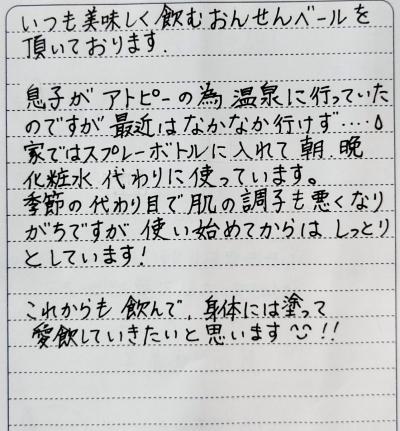 いつも美味しく飲むおんせんベールを
頂いております.
息子が アトピーの為 温泉に行っていた
のですが 最近は なかなか行けず‥‥
家ではスプレーボトルに入れて 朝.晩
化粧水 代わりに使っています。
季節の代わり目で肌の調子も悪くなり
がちですが 使い始めてからは しっとり
としています!
これからも 飲んで, 身体には塗って
愛飲していきたいと思います!!